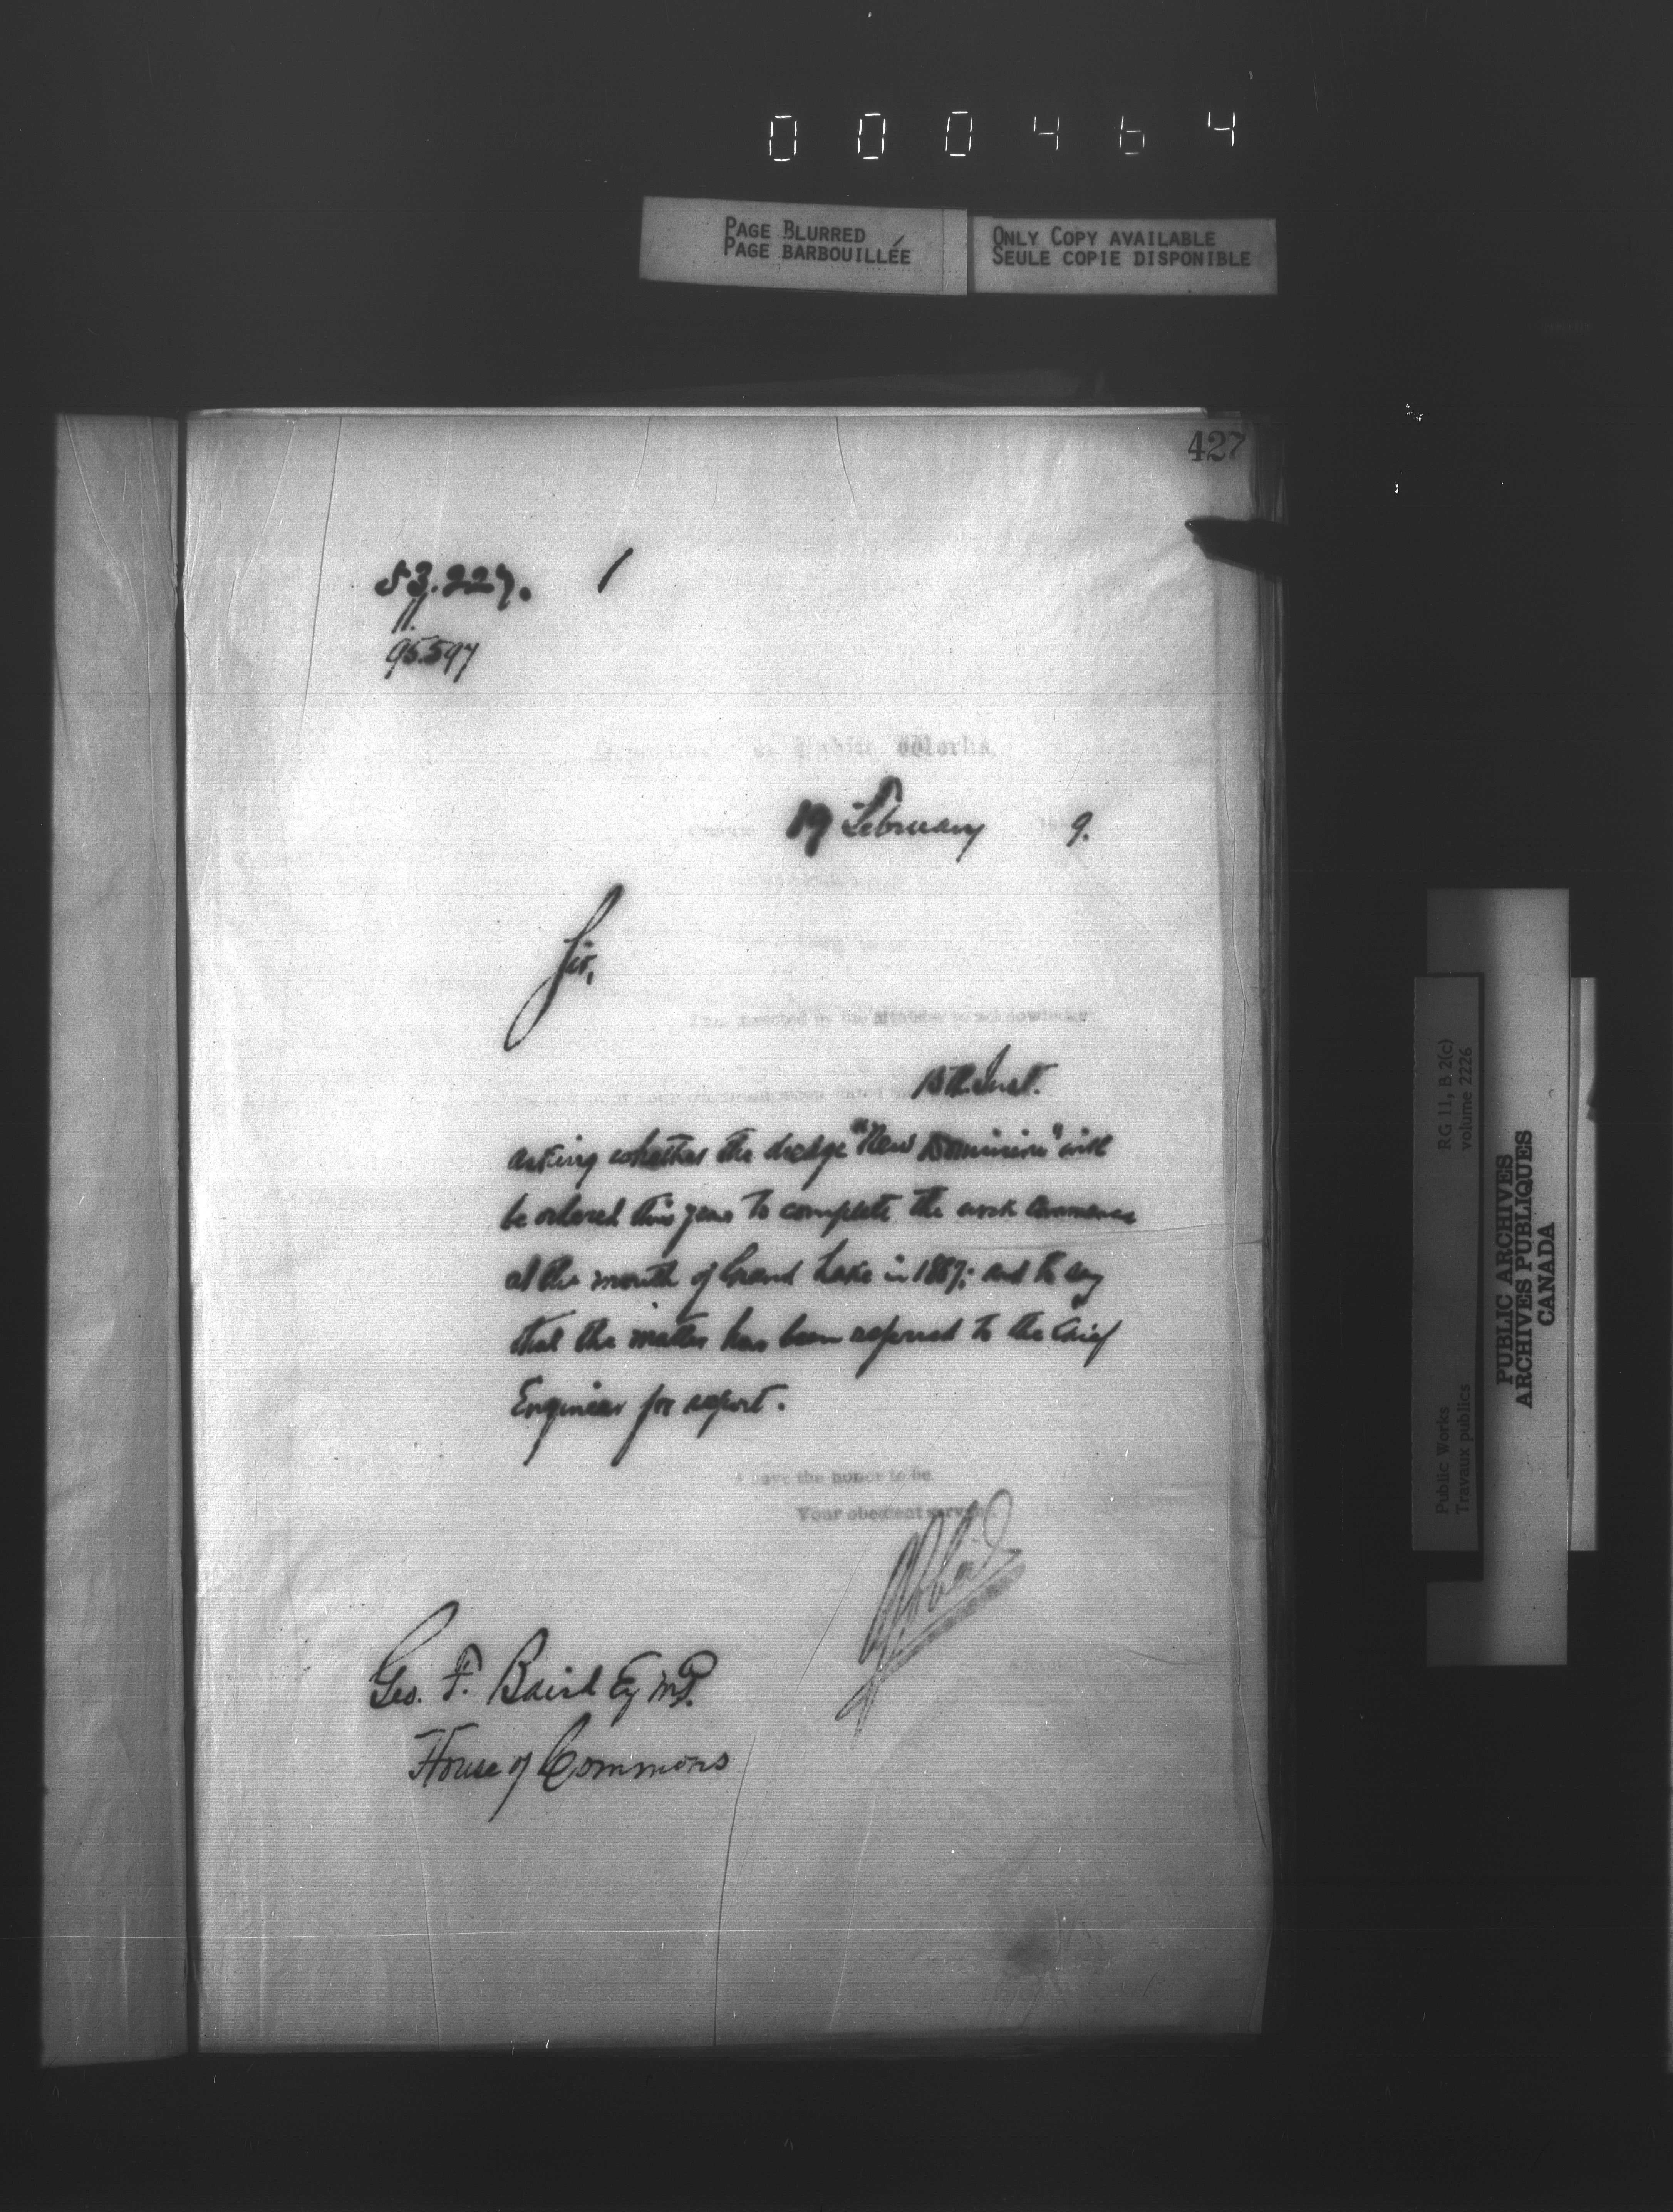 000464
PAGE BLURRED
PAGE BARBOUILLÉE
ONLY COPY AVAILABLE
SEULE COPIE DISPONIBLE
427
53.227.
95.597
Public Works
19 February 9.
Sir,
I am directed by the Minister to acknowledge
Inst.
asking whether the dredge "New Dominion" will
be ordered this year to complete the work commenced
at the mouth of Grand Lake in 1887; and to say
that the matter has been referred to the Chief
Engineer for report.
I have the honor to be
Your obedient servant
Geo. F. Baird Esq M.P.
House of Commons
Public Works
Travaux publics
RG 11, B 2(c)
volume 2226
PUBLIC ARCHIVES
ARCHIVES PUBLIQUES
CANADA